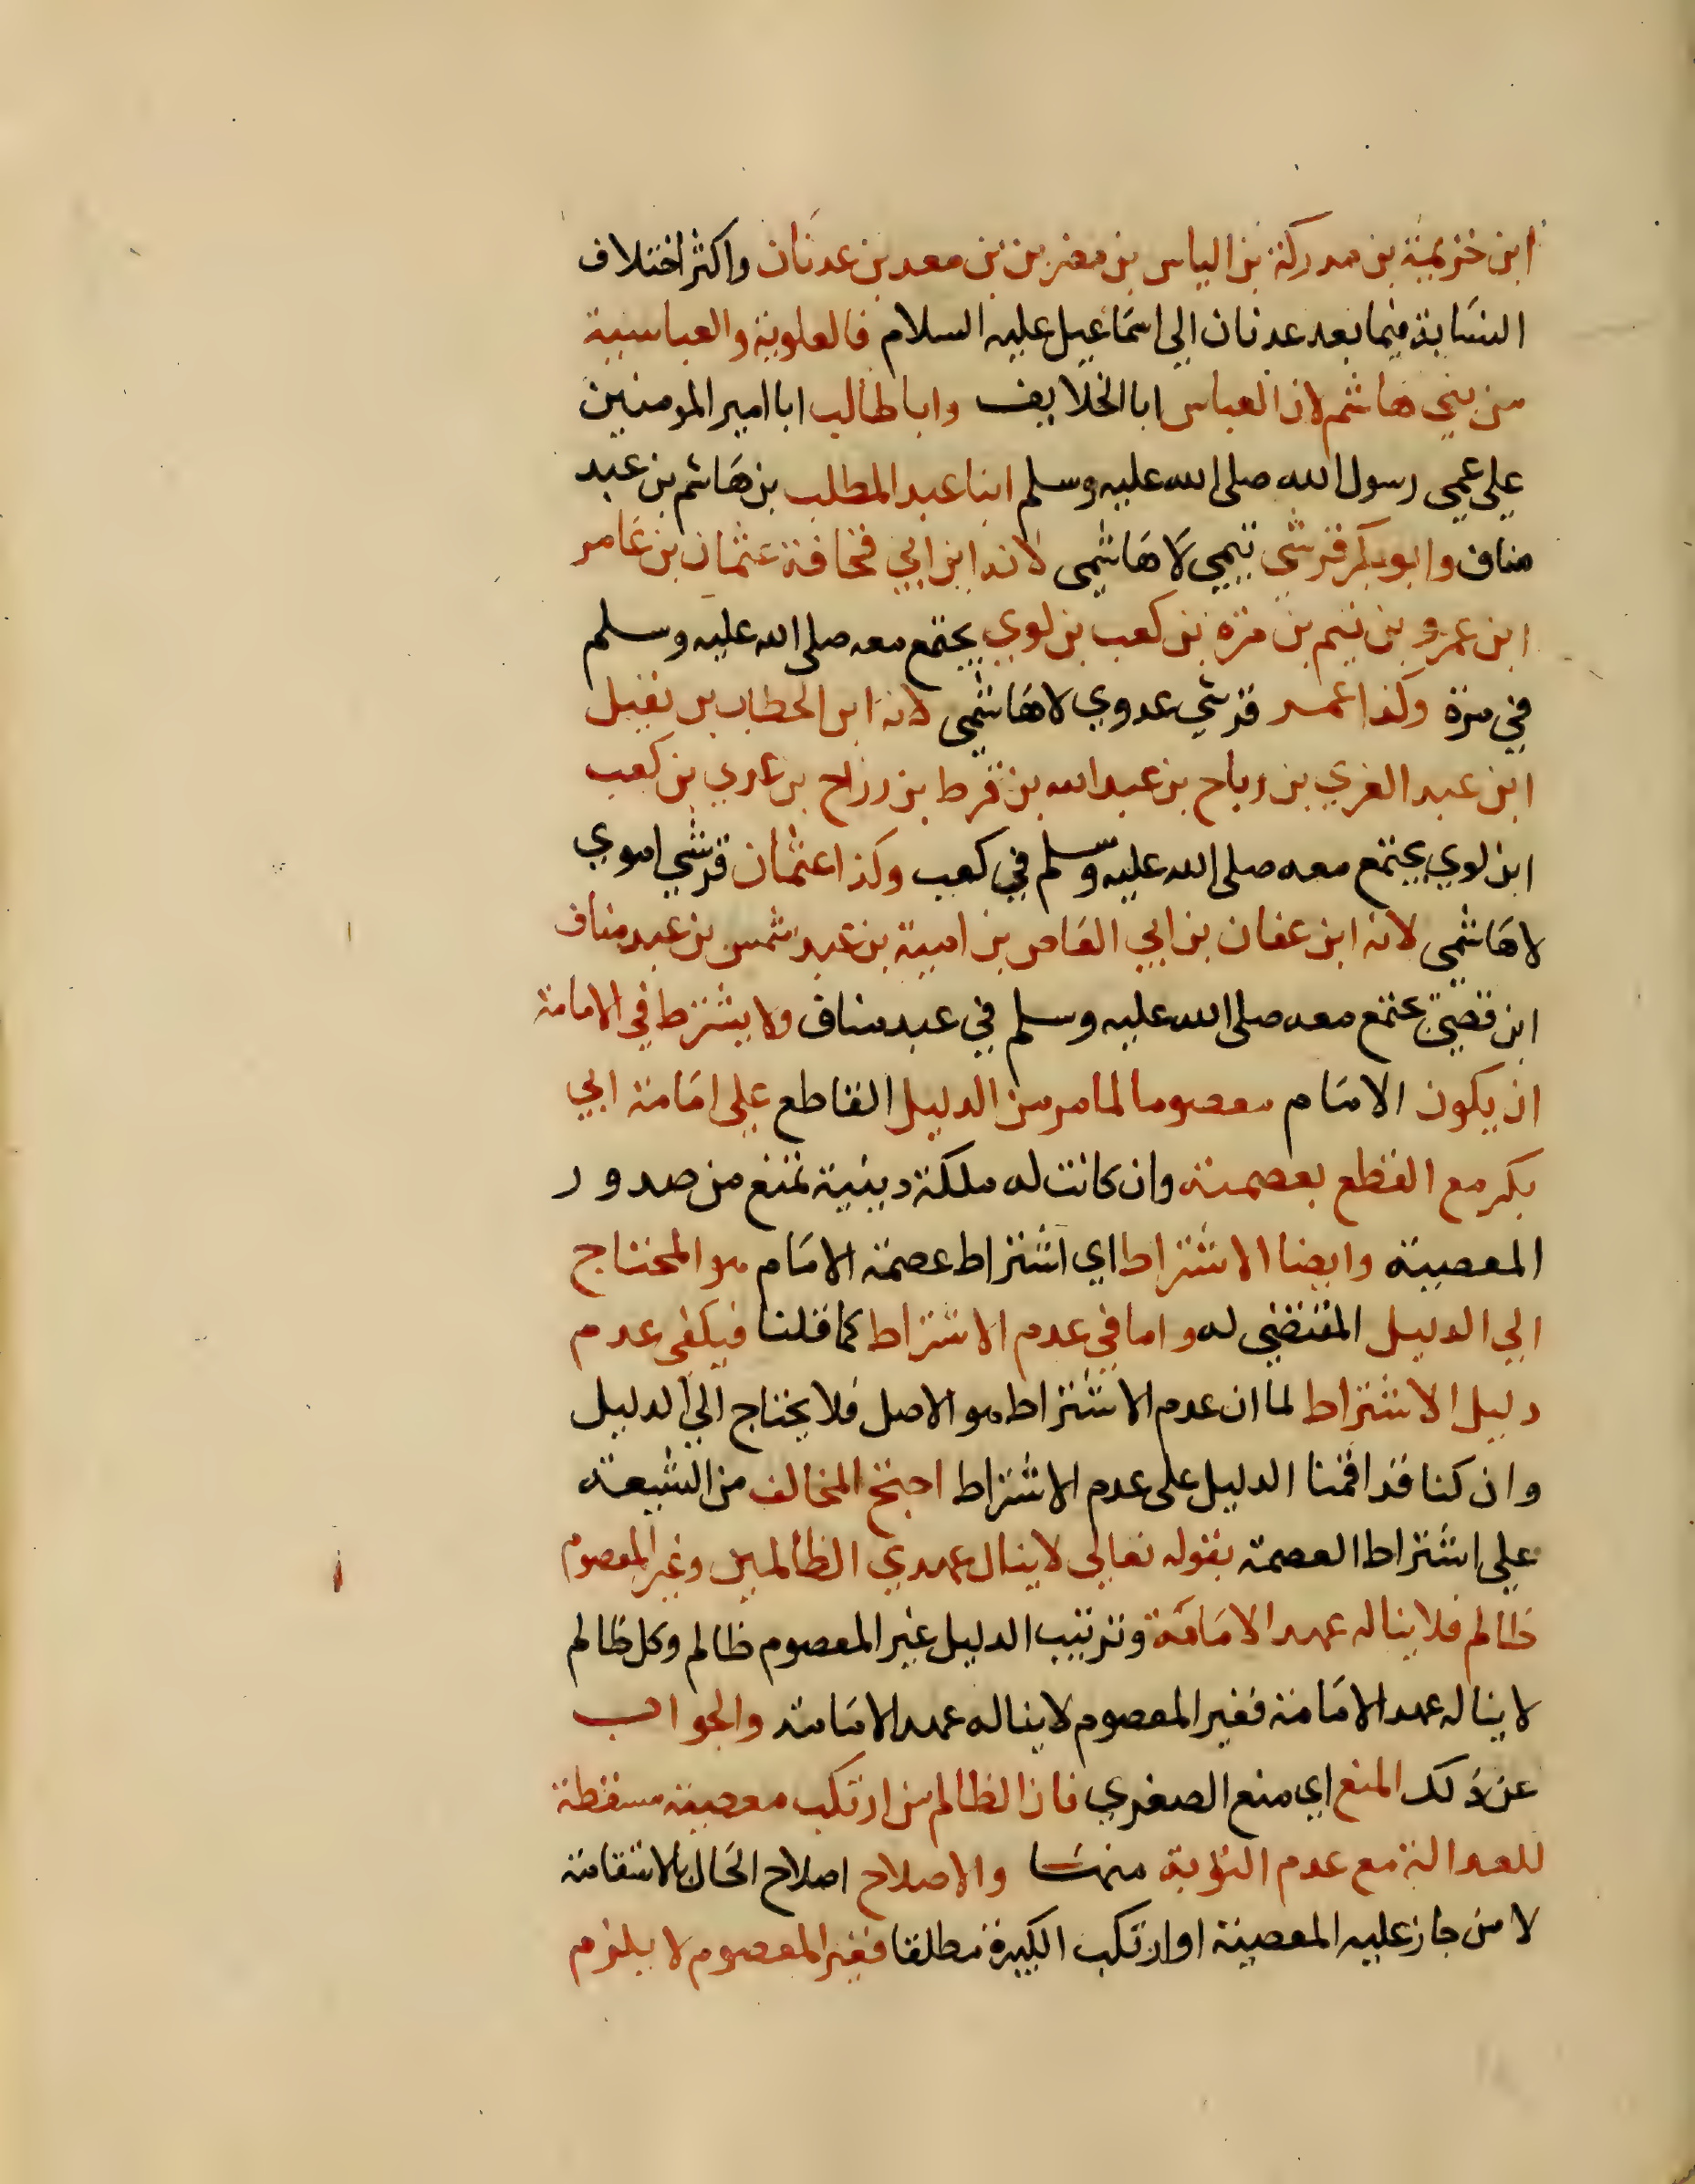 ابن خزيمة بن مدركة بن الياس بن مضر بن بن معد بن عدنان واكثر اختلاف
النسابة فيما بعد عدنان الي اسماعيل عليه السلام فالعلوية والعباسية
من بني هاشم لان العباس ابا الخلايف وابا طالب ابا امير المومنين
علي عمي رسول الله صلى الله عليه وسلم ابنا عبد المطلب بن هاشم بن عبد
مناف وابو بكر قرشي تيمي لا هاشمي لانه ابن ابي قحافة عثمان بن عامر
ابن عمرو بن تيم بن مرة بن كعب بن لوي يجتمع معه صلى الله عليه وسلم
في مرة وكذا عمر قرشي عدوي لا هاشمي لانه ابن الخطاب بن نفيل
ابن عبد العزي بن رباح بن عبد الله بن قرط بن رزاح بن عدي بن كعب
ابن لوي يجتمع معه صلى الله عليه وسلم في كعب وكذا عثمان قرشي اموي
لا هاشمي لانه ابن عفان بن ابي العاص بن امية بن عبد شمس بن عبد مناف
ابن قصي يجتمع معه صلى الله عليه وسلم في عبد مناف ولا يشترط في الامامة
ان يكون الامام معصوما لما مر من الدليل القاطع علي امامة ابي
بكر مع القطع بعصمته وان كانت له ملكة دينية تمنع من صدور
المعصية وايضا الاشتراط اي اشتراط عصمة الامام هو المحتاج
الي الدليل المقتضي له واما في عدم الاشتراط كما قلنا فيكفي عدم
دليل الاشتراط لما ان عدم الاشتراط هو الاصل فلا يحتاج الي الدليل
وان كنا قد اقمنا الدليل علي عدم الاشتراط احتج المخالف من الشيعة
علي اشتراط العصمة بقوله تعالي لا ينال عهدي الظالمين وغير المعصوم
ظالم فلا يناله عهد الامامة وترتيب الدليل غير المعصوم ظالم وكل ظالم
لا يناله عهد الامامة فغير المعصوم لا يناله عهد الامامة والجواب
عن ذلك المنع اي منع الصغري فان الظالم من ارتكب معصية مسقطة
للعدالة مع عدم التوبة منها والاصلاح اصلاح الحال بالاستقامة
لا من جاز عليه المعصية او ارتكب الكبيرة مطلقا فغير المعصوم لا يلزم